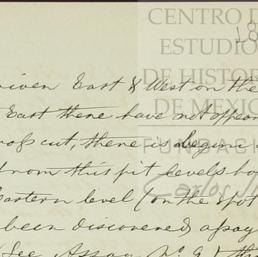 CENTRO D
ESTUDIO
DE HISTOR
DE MEXIC
FUNDAC
Carlos Sl
18
riven East & West on the
East there have not appear
ross cut, there is begin
from this pit levels bo
Eastern level (on the spot
been discovered a pay
(See Assay No. 9) th